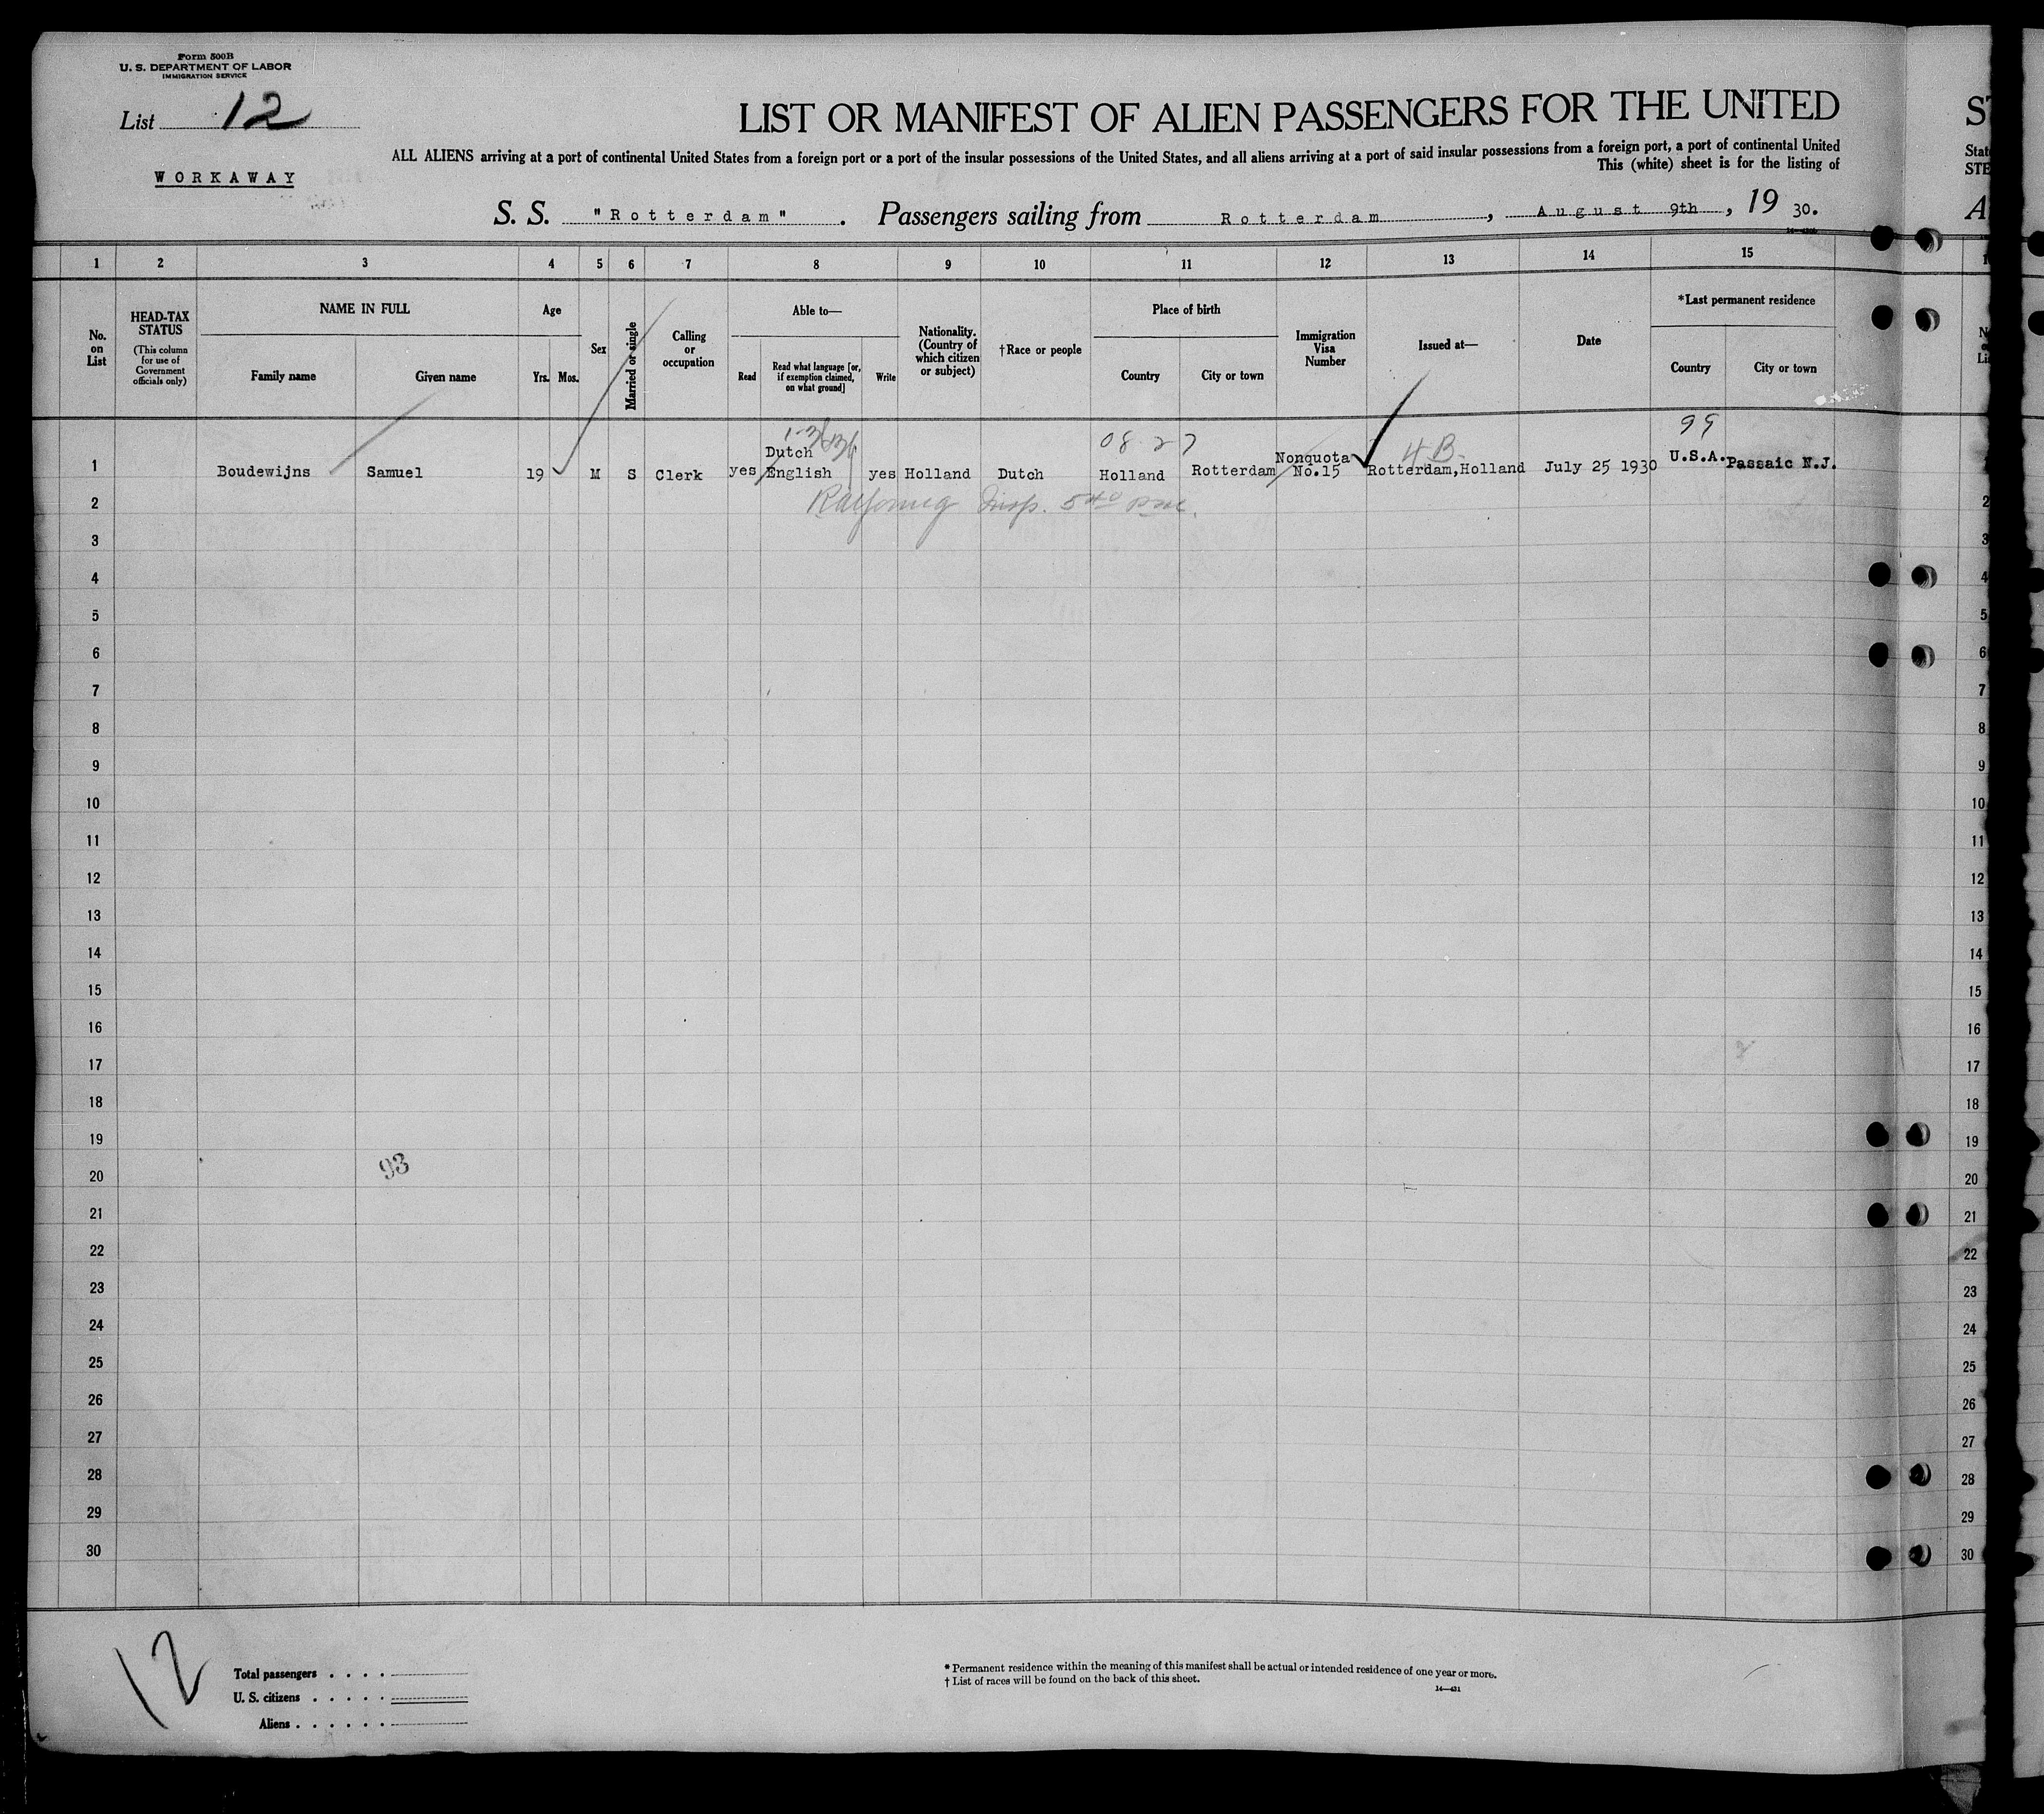 Form 500B
U. S. DEPARTMENT OF LABOR
IMMIGRATION SERVICE
List 12
WORKAWAY
LIST OR MANIFEST OF ALIEN PASSENGERS FOR THE UNITED
ALL ALIENS arriving at a port of continental United States from a foreign port or a port of the insular possessions of the United States, and all aliens arriving at a port of said insular possessions from a foreign port, a port of continental United
This (white) sheet is for the listing of
S. S. "Rotterdam". Passengers sailing from Rotterdam, August 9th, 19 30.
1 2 3 4 5 6 7 8 9 10 11 12 13 14 15
No. on List
HEAD-TAX STATUS
(This column for use of Government officials only)
NAME IN FULL
Family name Given name
Age
Yrs. Mos.
Sex
Married or single
Calling or occupation
Able to—
Read Read what language [or, if exemption claimed, on what ground] Write
Nationality. (Country of which citizen or subject)
†Race or people
Place of birth
Country City or town
Immigration Visa Number
Issued at—
Date
*Last permanent residence
Country City or town
08-27 4B 99
1 Boudewijns Samuel 19 M S Clerk yes Dutch English yes Holland Dutch Holland Rotterdam Nonquota No.15 Rotterdam,Holland July 25 1930 U.S.A. Passaic N.J.
2
3
4
5
6
7
8
9
10
11
12
13
14
15
16
17
18
19
93
20
21
22
23
24
25
26
27
28
29
30
12
Total passengers
U. S. citizens
Aliens
* Permanent residence within the meaning of this manifest shall be actual or intended residence of one year or more.
† List of races will be found on the back of this sheet.
14—431
ST
Stat
STE
A
2
3
4
5
6
7
8
9
10
11
12
13
14
15
16
17
18
19
20
21
22
23
24
25
26
27
28
29
30